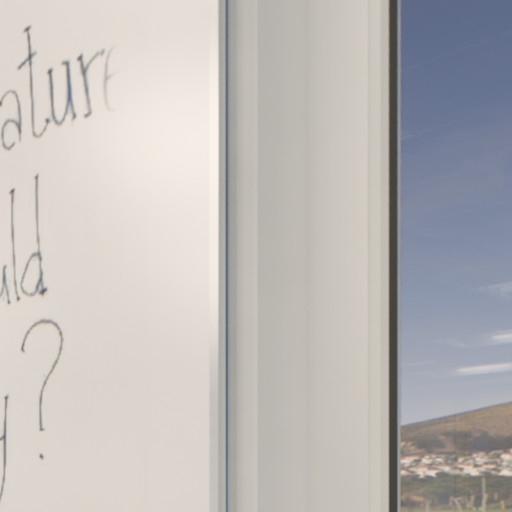 ature
uld
y?